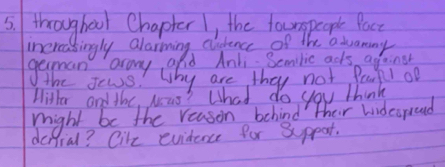 5. throughout Chapter 1, the townspeople face
increasingly alarming evidence of the advancing
german army and Anti-Semitic acts against
the Jews. Why are they not fearful of
Hitler and the Nazis? What do you think
might be the reason behind their widespread
denial? Cite evidence for Support.